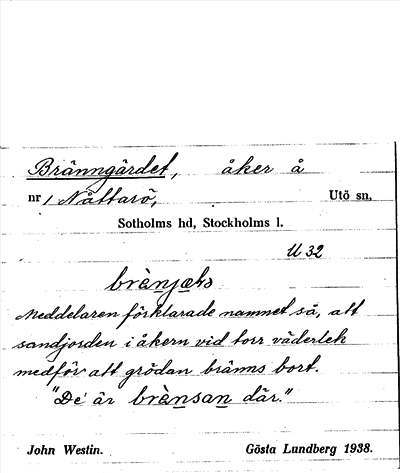 Bränngärdet, åker å
nr 1 Nåttarö, Utö sn,
Sotholms hd, Stockholms l.
U 32
Meddelaren förklarade namnet så, att
sandjorden i åkern vid torr väderlek
medför att grödan bränns bort.
"De är brànsan där."
John Westin. Gösta Lundberg 1938.